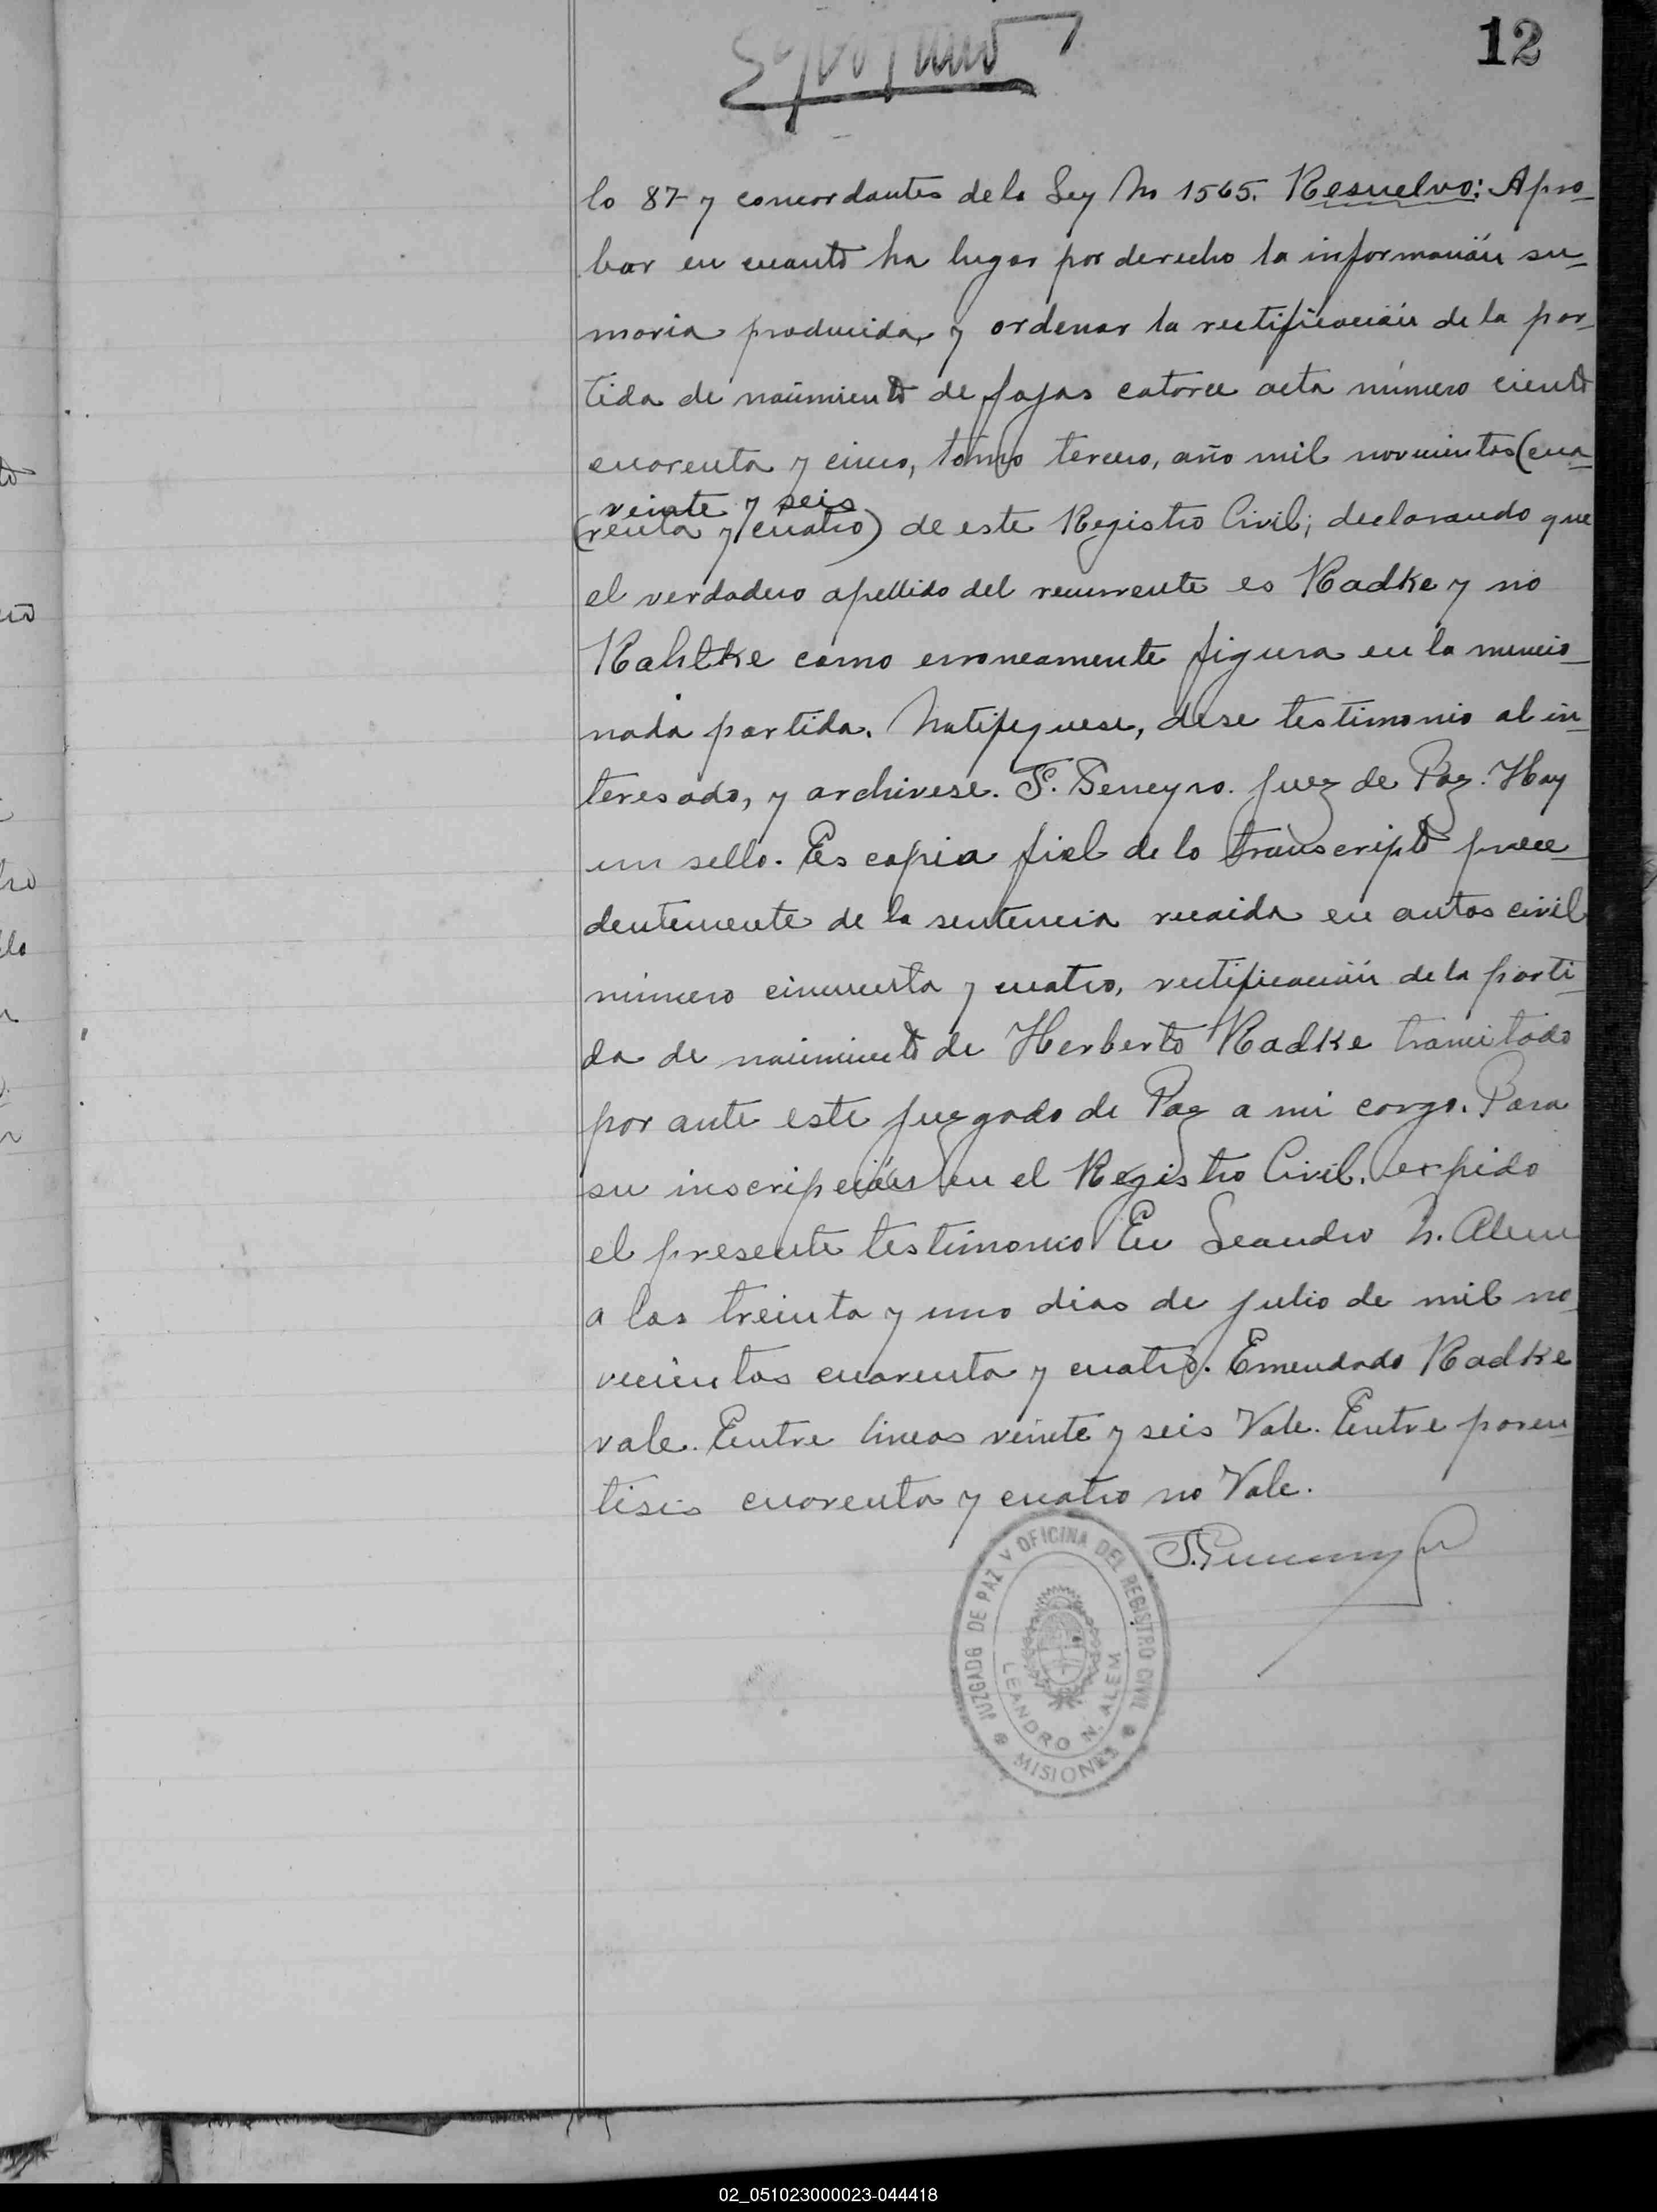 12
lo 87 y concordantes de la Ley Nº 1565. Resuelvo: Apro-
bar en cuanto ha lugar por derecho la información su-
maria producida, y ordenar la rectificación de la par-
tida de nacimiento de fojas catorce acta número ciento
cuarenta y cinco, tomo tercero, año mil novecientos (cua-
veinte y seis
(renta y cuatro) de este Registro Civil; declarando que
el verdadero apellido del recurrente es Radke y no
Rahlke como erroneamente figura en la mencio-
nada partida. Notifiquese, dese testimonio al in-
teresado, y archivese. S. Peneyro. Juez de Paz. Hay
un sello. Es copia fiel de lo transcripto prece-
dentemente de la sentencia recaida en autos civil
número cincuenta y cuatro, rectificación de la parti-
da de nacimiento de Herberto Radke tramitado
por ante este Juzgado de Paz a mi cargo. Para
su inscripción en el Registro Civil, expido
el presente testimonio En Leandro N. Alem
a los treinta y uno dias de Julio de mil no-
vecientos cuarenta y cuatro. Emendado Radke
vale. Entre lineas veinte y seis Vale. Entre paren-
tisis cuarenta y cuatro no Vale.
JUZGADO DE PAZ Y OFICINA DEL REGISTRO CIVIL
LEANDRO N. ALEM
MISIONES
02_051023000023-044418